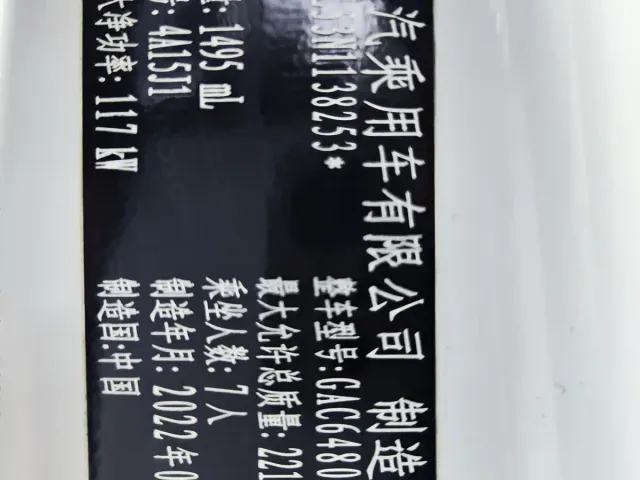 汽乘用车有限公司 制造
53N1138253*
整车型号:GAC6480
最大允许总质量:221
1495 mL
乘坐人数:7人
4A15J1
制造年月:2022年0
净功率:117 kW
制造国:中国